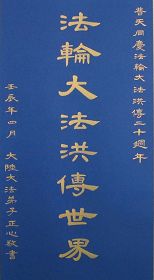 普天同慶法輪大法洪傳二十週年
法輪大法洪傳世界
壬辰年四月　大陸大法弟子正心敬書